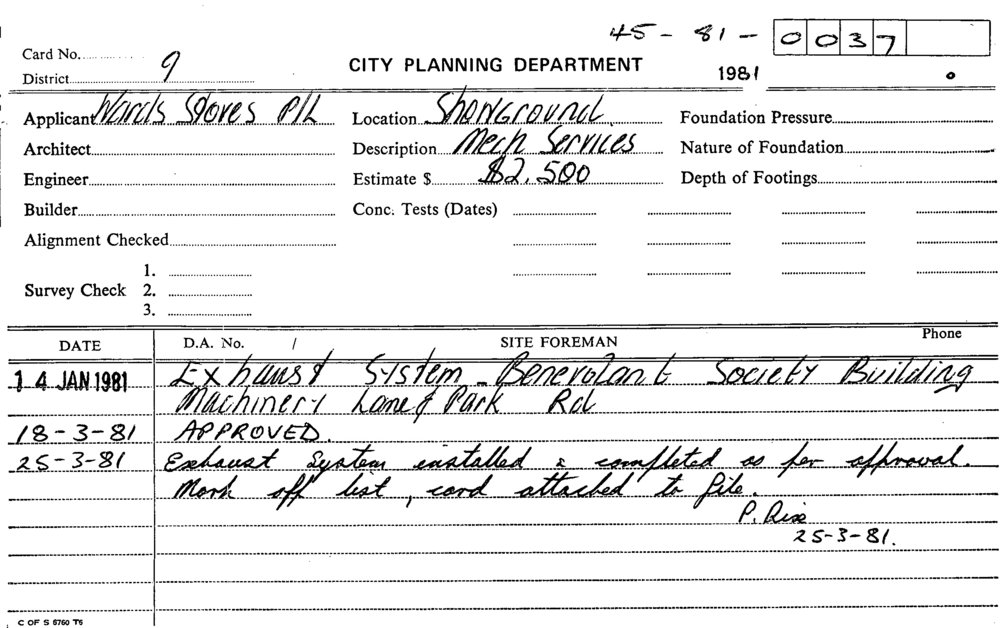 45 - 81 - 0037
Card No.
District 9
CITY PLANNING DEPARTMENT
1981
Applicant Wards Stoves P/L
Location Showground
Foundation Pressure
Architect
Description Mech Services
Nature of Foundation
Engineer
Estimate $ $2,500
Depth of Footings
Builder
Conc. Tests (Dates)
Alignment Checked
1.
Survey Check 2.
3.
DATE
D.A. No. /
SITE FOREMAN
Phone
14 JAN 1981 Exhaust System - Benevolant Society Building
Machinery Lane & Park Rd
18-3-81 APPROVED.
25-3-81 Exhaust System installed & completed as per approval.
Mark off list, card attached to file.
P. Rise
25-3-81.
C OF S 6760 T6